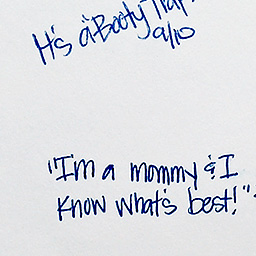 It's a Booty Trap!
9/10
"I'm a mommy & I
know what's best!"